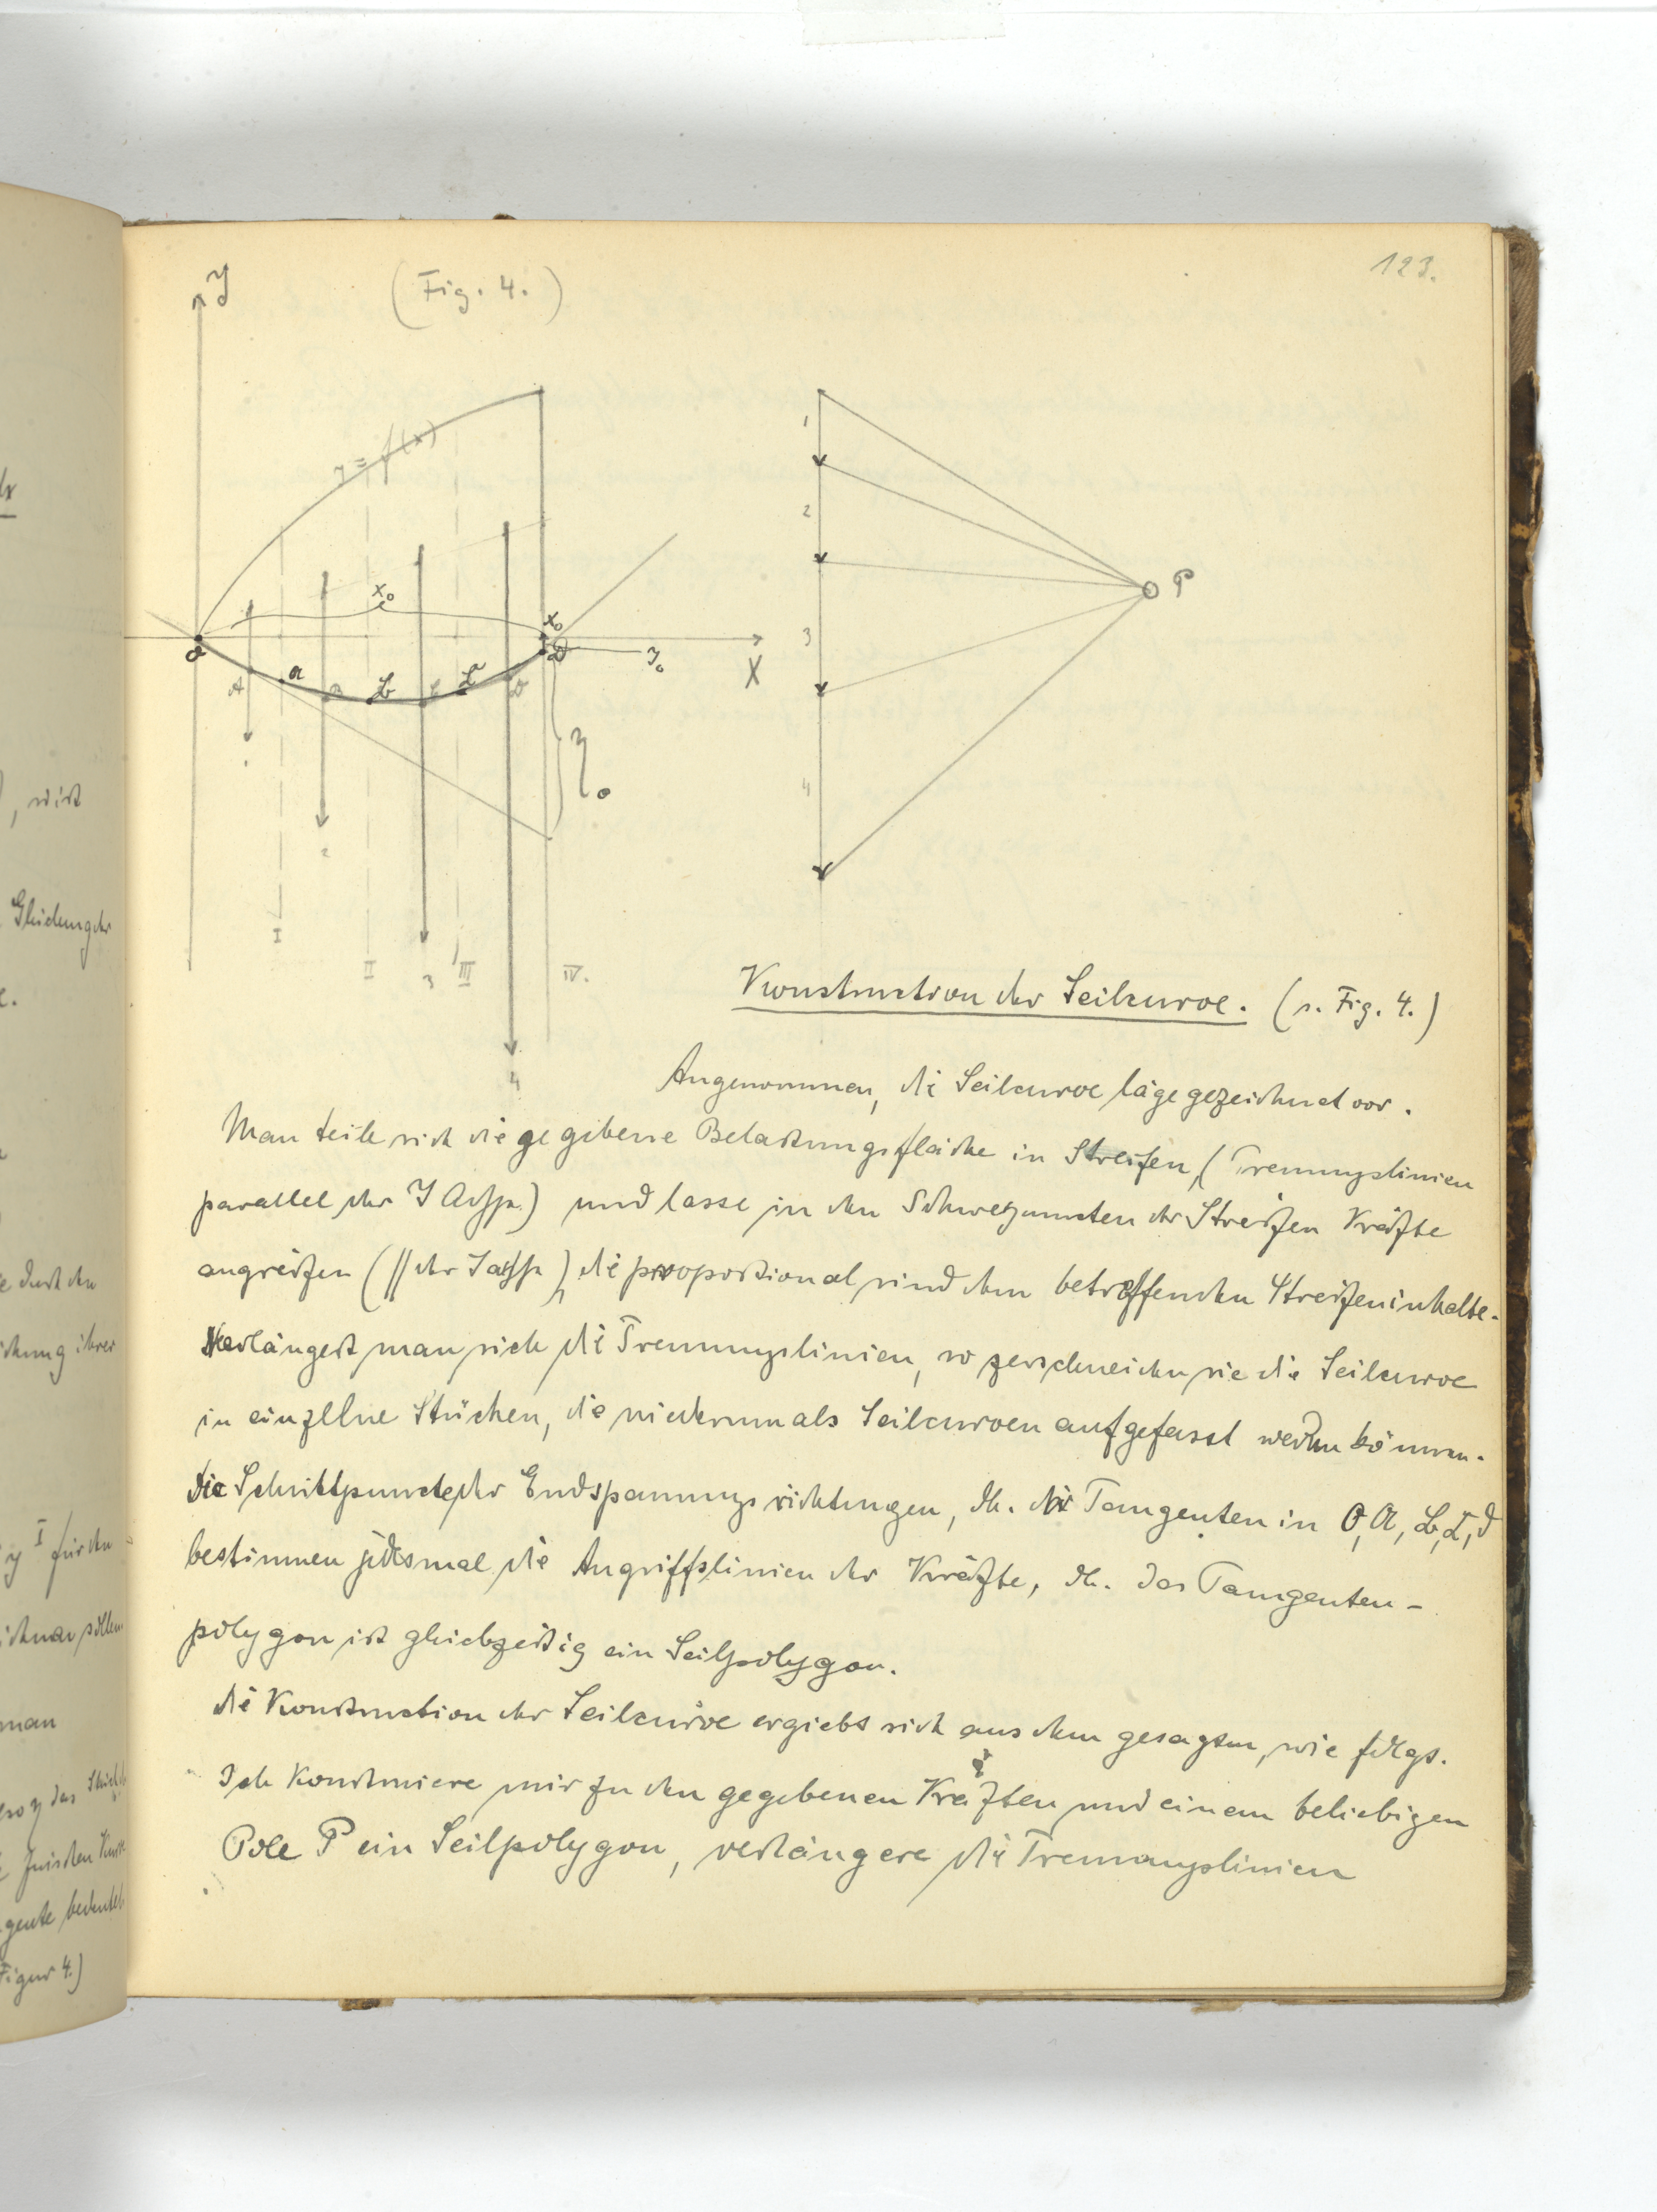 123.
(Fig. 4.)
Y
y = f(x)
x₀
x₀
O
A
B
C
D
y₀
X
η₀
1
2
3
4
I
II
III
IV.
1
2
3
4
P
Konstruction der Seilcurve. (s. Fig. 4.)
Angenommen, die Seilcurve läge gezeichnet vor.
Man teile sich die gegebene Belastungsfläche in Streifen, (Trennungslinien
parallel der Y Achse) und lasse in den Schwerpuncten der Streifen Kräfte
angreifen (// der Yachse), die proportional sind dem betreffenden Streifeninhalte.
Verlängert man sich die Trennungslinien, so zerschneiden sie die Seilcurve
in einzelne Stücken, die wiederum als Seilcurven aufgefasst werden können.
Die Schnittpuncte der Endspannungsrichtungen, dh. der Tangenten in O, A, B, C, D
bestimmen jedesmal die Angriffslinien der Kräfte, dh. das Tangenten-
polygon ist gleichzeitig ein Seilpolygon.
Die Konstruction der Seilcurve ergiebt sich aus dem gesagten, wie folgt.
Ich konstruiere mir zu den gegebenen Kräften und einem beliebigen
Pole P ein Seilpolygon, verlängere die Trennungslinien